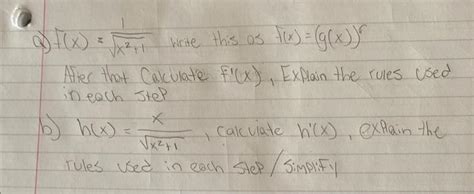 a) f(x) = 1/√x²+1 write this as f(x) = (g(x))^r
After that Calculate f'(x), Explain the rules used
in each step
b) h(x) = x/√x²+1, calculate h'(x), explain the
rules used in each step/simplify